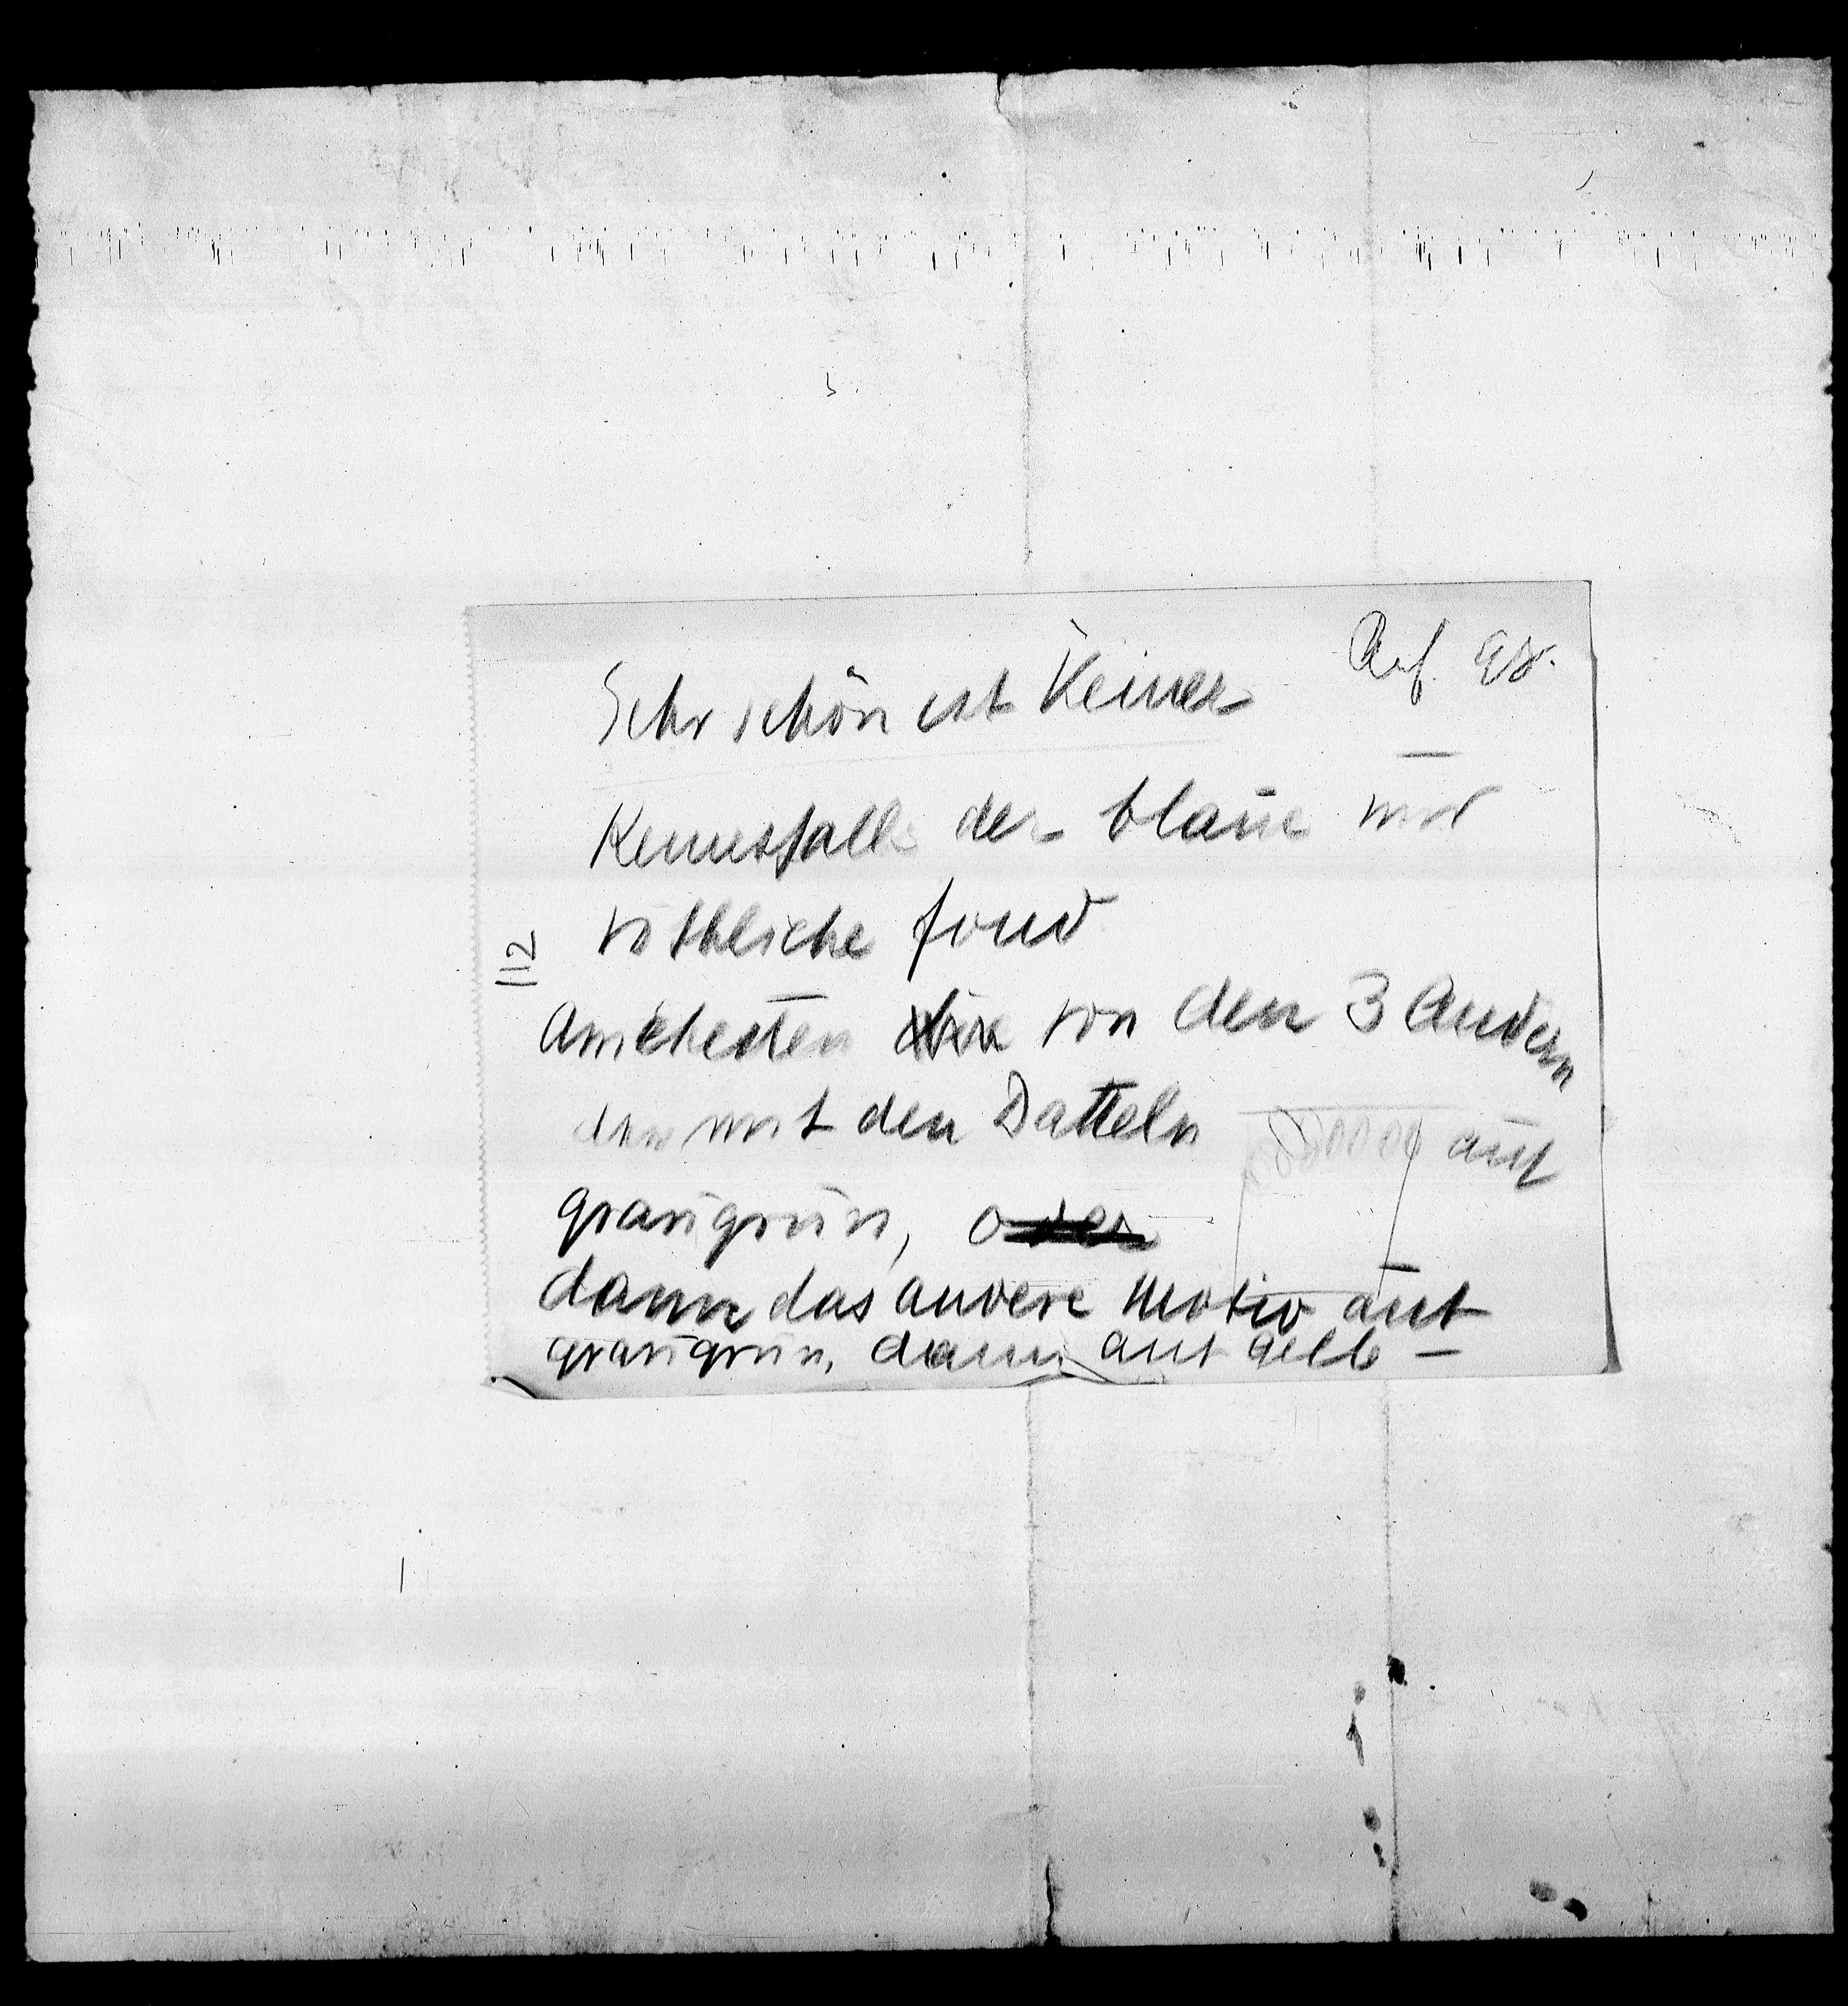 Auf. 98.
Sehr schön ist Keiner
Keinesfalls der blaue und
röthliche fond
112
Am ehesten von den 3 Andern
den mit den Datteln auf
graugrün, oder
dann das andere Motiv auf
graugrün, dann auf gelb –